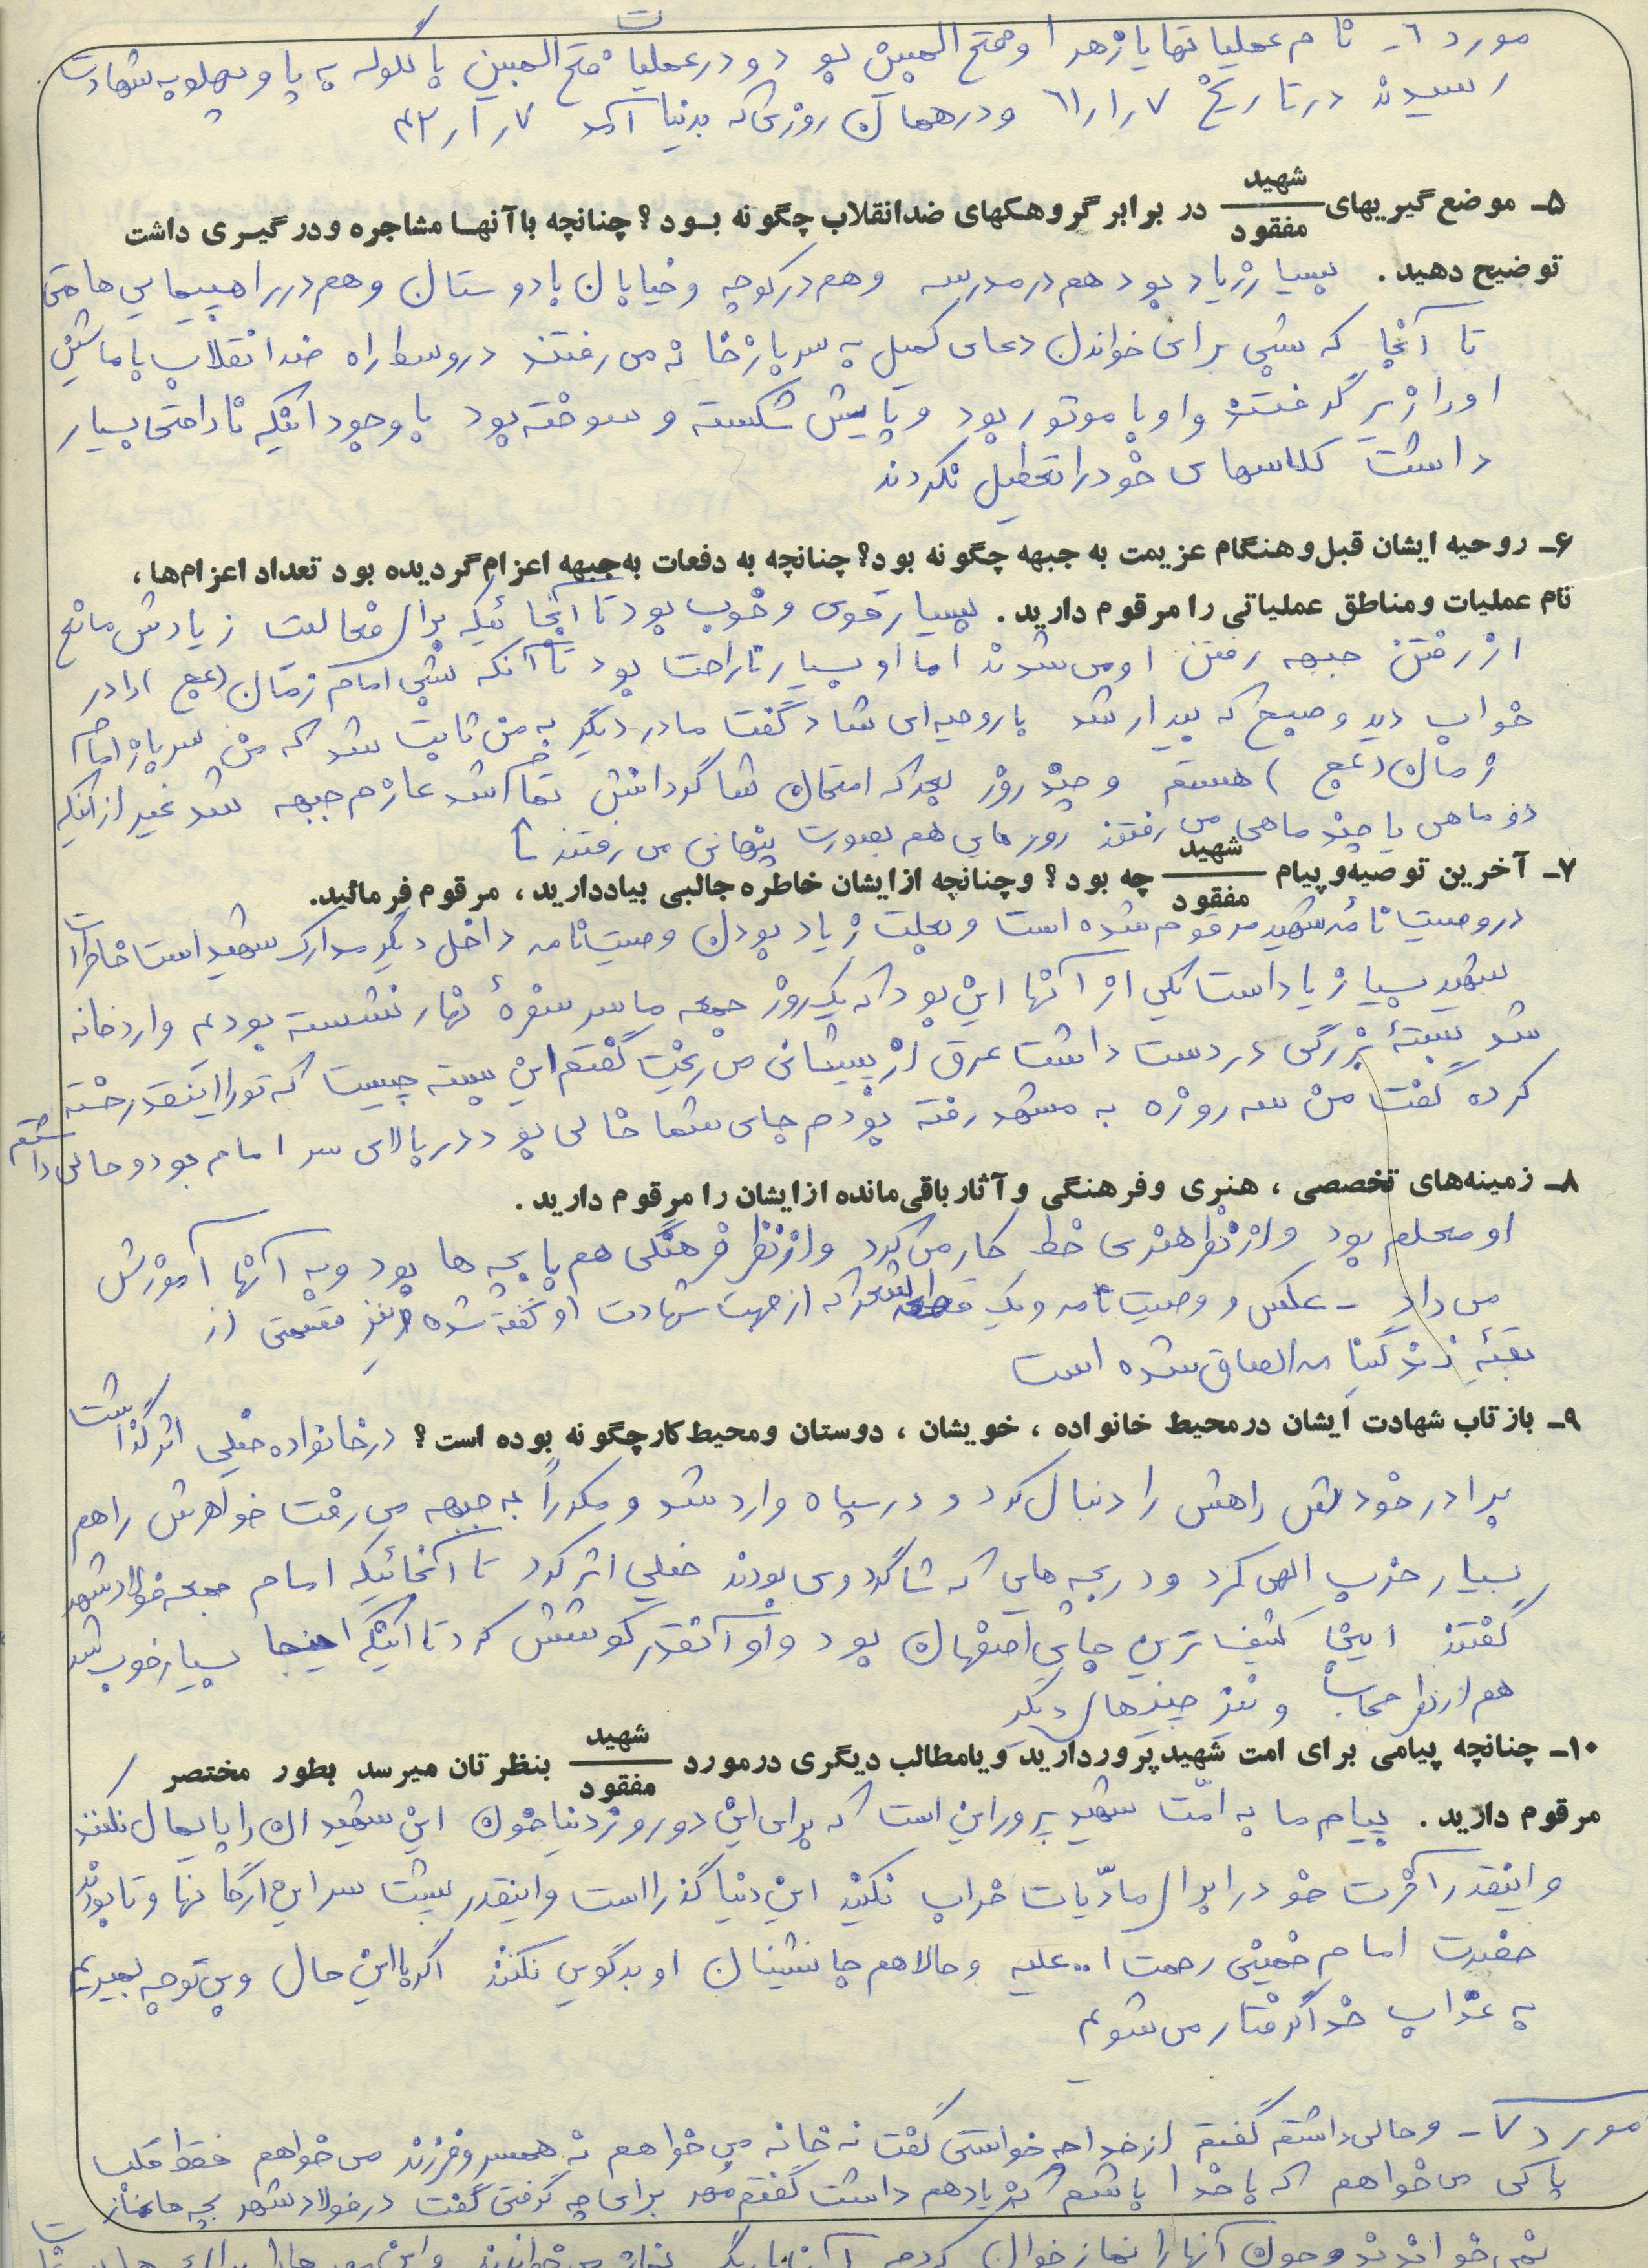 مورد ٦- نام عملیاتها یا زهرا و فتح المبین بود و در عملیات فتح المبین با گلوله به پا و پهلو به شهادت
رسیدند در تاریخ ٧ر١ر٦١ و در همان روزی که بدنیا آمد ٧ر١ر٤٢
۵ـ موضع‌گیریهای شهید / مفقود در برابر گروهکهای ضدانقلاب چگونه بود؟ چنانچه با آنها مشاجره و درگیری داشت
توضیح دهید. بسیار زیاد بود هم در مدرسه و هم در کوچه و خیابان با دوستان و هم در راهپیمایی ها حتی
تا آنجا که شبی برای خواندن دعای کمیل به سربازخانه می رفتند در وسط راه ضد انقلاب با ماشین
او را زیر گرفتند و او با موتور بود و پایش شکسته و سوخته بود با وجود اینکه ناراحتی بسیار
داشت کلاسهای خود را تعطیل نکردند
۶ـ روحیه ایشان قبل و هنگام عزیمت به جبهه چگونه بود؟ چنانچه به دفعات به جبهه اعزام گردیده بود تعداد اعزام‌ها،
نام عملیات و مناطق عملیاتی را مرقوم دارید. بسیار قوی و خوب بود تا آنجائیکه برای فعالیت زیادش مانع
از رفتن جبهه رفتن او می شدند اما او بسیار ناراحت بود تا آنکه شبی امام زمان (عج) را در
خواب دید و صبح که بیدار شد با روحیه ای شاد گفت مادر دیگر به من ثابت شد که من سرباز امام
زمان (عج) هستم و چند روز بعد که امتحان شاگردانش تمام شد عازم جبهه شد غیر از اینکه
دو ماهی یا چند ماهی می رفتند روزهایی هم بصورت پنهانی می رفتند
۷ـ آخرین توصیه و پیام شهید / مفقود چه بود؟ و چنانچه از ایشان خاطره جالبی بیاد دارید، مرقوم فرمائید.
در وصیت نامه شهید مرقوم شده است و بعلت زیاد بودن وصیت نامه داخل دیگر مدارک شهید است خاطرات
شهید بسیار زیاد است یکی از آنها این بود که یک روز جمعه ما سر سفرهٔ نهار نشسته بودیم وارد خانه
شد بستهٔ بزرگی در دست داشت عرق از پیشانی می ریخت گفتم این بسته چیست که تو را اینقدر خسته
کرده گفت من سه روزه به مشهد رفته بودم جای شما خالی بود در بالای سر امام بود و حالی داشتم
۸ـ زمینه‌های تخصصی، هنری و فرهنگی و آثار باقی‌مانده از ایشان را مرقوم دارید.
او معلم بود و از نظر هنری خط کار می کرد و از نظر فرهنگی هم با بچه ها بود و به آنها آموزش
می داد ـ عکس و وصیت نامه و یک قطعه شعر که از جهت شهادت او گفته شده و نیز قسمتی از
بقیه زندگینامه الصاق شده است
۹ـ بازتاب شهادت ایشان در محیط خانواده، خویشان، دوستان و محیط کار چگونه بوده است؟ در خانواده خیلی اثر گذاشت
برادر خودش راهش را دنبال کرد و در سپاه وارد شد و مکرراً به جبهه می رفت خواهرش را هم
بسیار حزب الهی کرد و در بچه هایی که شاگرد وی بودند خیلی اثر کرد تا آنجائیکه امام جمعه فولادشهر
گفتند اینجا کثیف ترین جای اصفهان بود و او آنقدر کوشش کرد تا اینکه اینجا بسیار خوب شد
هم از نظر حجاب و نیز چیزهای دیگر
۱۰ـ چنانچه پیامی برای امت شهیدپرور دارید و یا مطالب دیگری در مورد شهید / مفقود بنظرتان میرسد بطور مختصر
مرقوم دارید. پیام ما به امّت شهید پرور این است که برای این دو روز دنیا خون این شهیدان را پایمال نکنند
و اینقدر آخرت خود را برای مادّیات خراب نکنید این دنیا گذرا است و اینقدر پشت سر این ارگانها و تا بودند
حضرت امام خمینی رحمت ا.. علیه و حالا هم جانشینان او بدگویی نکنند اگر با این حال و بی توجه بمیریم
به عذاب خدا گرفتار می شویم
مورد ٧- و حالی داشتم گفتم از خدا چه خواستی گفت نه خانه می خواهم نه همسر و فرزند می خواهم فقط قلب
پاکی می خواهم که با خدا باشم هم داشت گفتم مهر برای چه گرفتی گفت در فولادشهر بچه ها نماز
نمی خواندند و چون آنها را نماز خوان کردم